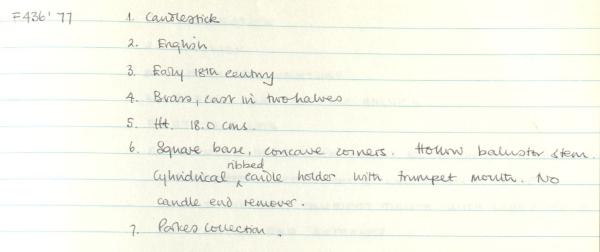 F436'77 1. Candlestick
2. English
3. Early 18th century
4. Brass, cast in two halves
5. Ht. 18.0 cms.
6. Square base, concave corners. Hollow baluster stem.
Cylindrical ribbed candle holder with trumpet mouth. No
candle end remover.
7. Parkes Collection.